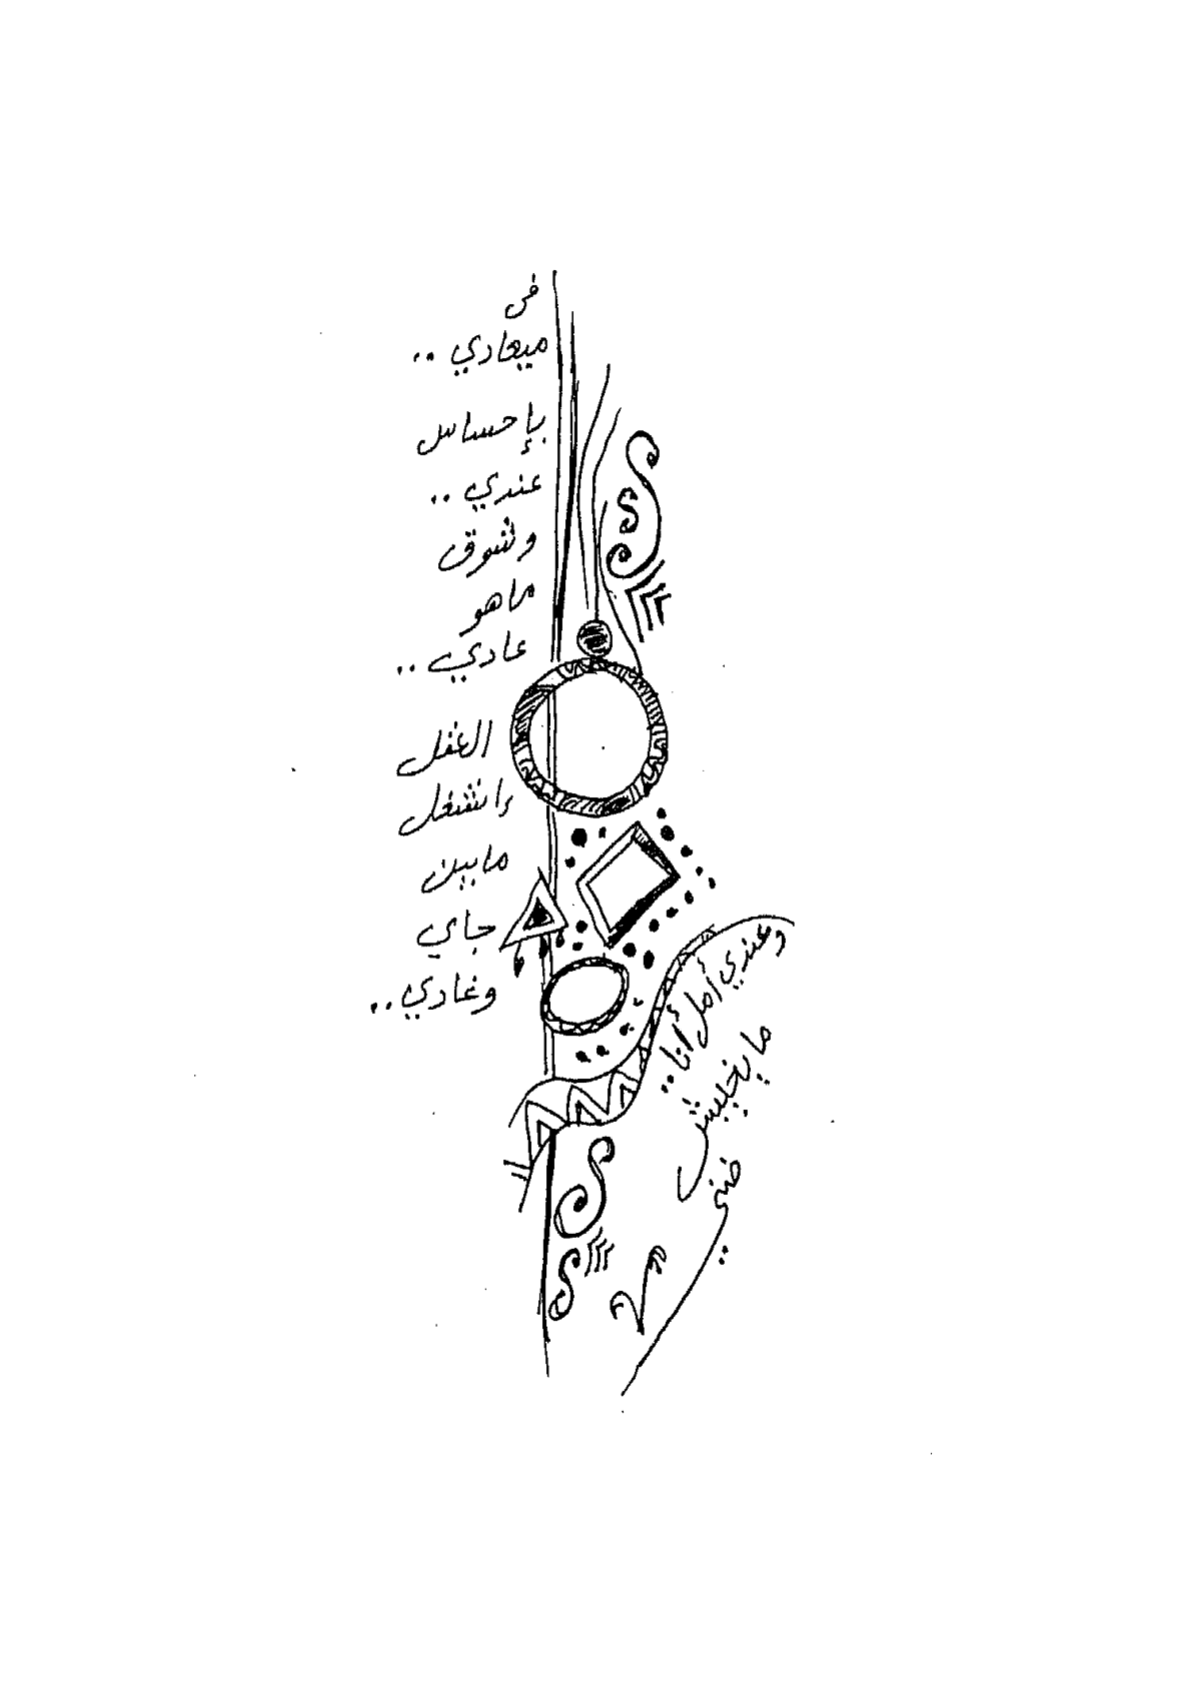 فى
ميعادي ..
بإحساس
عندي ..
وشوق
ماهو
عادي ..
العقل
انشغل
مابين
جاي
وغادي ..
وعندي أمل أنا ..
ما يخيبش
ضني ..